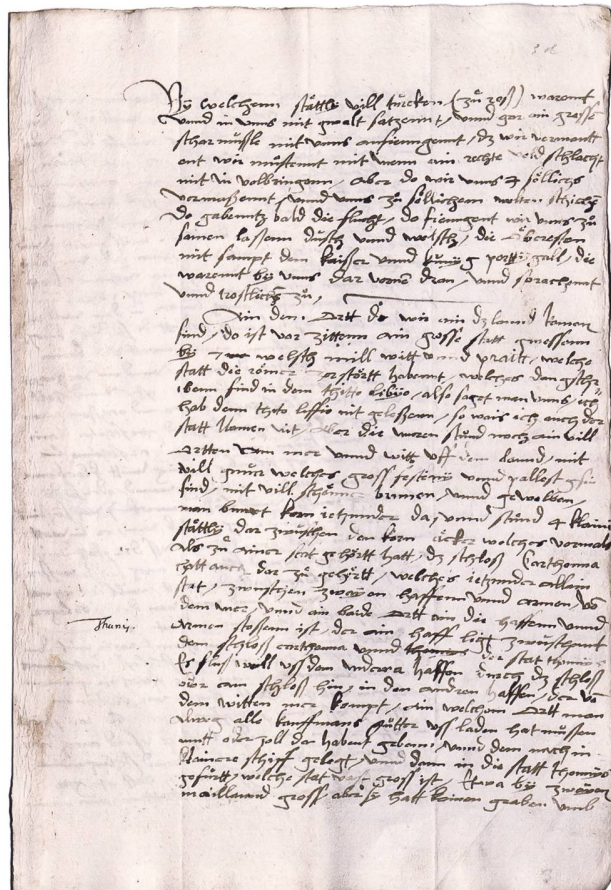 By welchenn stättly vill türcken (zu ross) warennt
vnnd in vnns mit gwalt satzennt, vnnd gar ain grosse
scharmüssle mit vnns anfienngennt, dz wir vermaintt
ont wir müstennt mit wenn ain rechte veld schlacht
mit in volbringenn, aber do wir vnns söllichs
vermessennt, vnnd vnns zu söllichem
do gabenntz bald die flucht, do fienngent wir vnns zu
samen lassenn dutsch vnnd welsch, die öberesten
mit sampt dem kaisser vnnd küng portigall, die
warennt by vnns dar vornē dran, vnnd sprachennt
vnnd trostlich zu,
An dem Ortt do wir ain dz lannd komen
sind, do ist vor zittenn ain grosse statt gwessenn
by welsch mill witt vnnd prait, welche
statt die römer zerstörtt habennt, welches den gschr
ibenn find in dem thitto libio, also saget man vnns, ich
hab denn thito liffio nit gelessenn, so wais ich auch der
statt namen nit, aber die muren stünd noch ain vill
Ortten vom mer vnnd witt vff dem lannd, mit
vill gmür welches gross festenn vnnd pallest gsin
sind, mit vill schönne brunen, vnnd gewolben,
man buwet korn ietzunder da, vnnd stünd 4 klaine
stättly dar zwüschen den korn äcker welches vormals
als zu ainer stat gehörtt hatt, dz schloss Carthonna
hatt auch dar zu gehörtt, welches ietzunder allain
stat, zwüschen zwayen haffenn vnnd armen, vō
dem mer, vnnd ain baide Ortt an die haffenn vnnd
armen stossenn ist, der ain haff ligt zwüschent
Thunis.
dem schloss carthonna vnnd der stat thunis
Es fluss woll vss dem andern haffen durch dz schloss
oder am schloss hin, in den andren haffen, der vō
dem witten mer kompt, ain welchem Ortt man
alweg alle kauffmans gütter vss laden hat müssen
mitt oder zoll der habent gebenn, vnnd dem nach in
klainere schiff gelegt, vnnd dann in die statt thonniss
gefürtt, welche stat vast gross ist, Etwa by zwayen
maillannd gross aber sy hatt kainen graben vmb